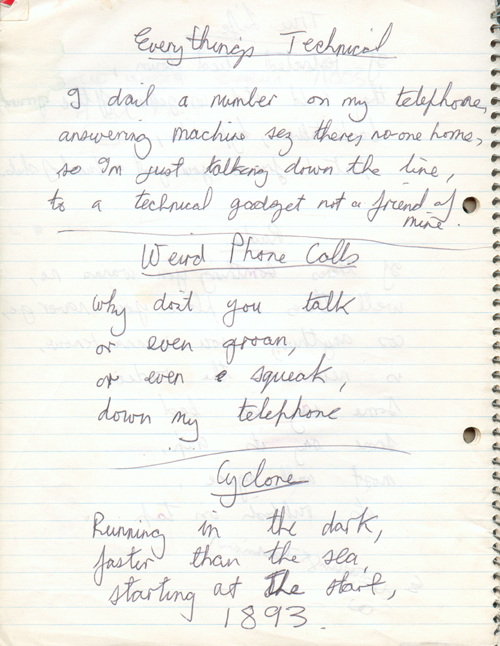 Everythings Technical
I dail a number on my telephone,
answering machine sez theres no-one home,
so I'm just talking down the line,
to a technical gadget not a friend of
mine.
Weird Phone Calls
Why don't you talk
or even groan,
or even squeak,
down my telephone
Cyclone
Running in the dark,
faster than the sea,
starting at the start,
1893.